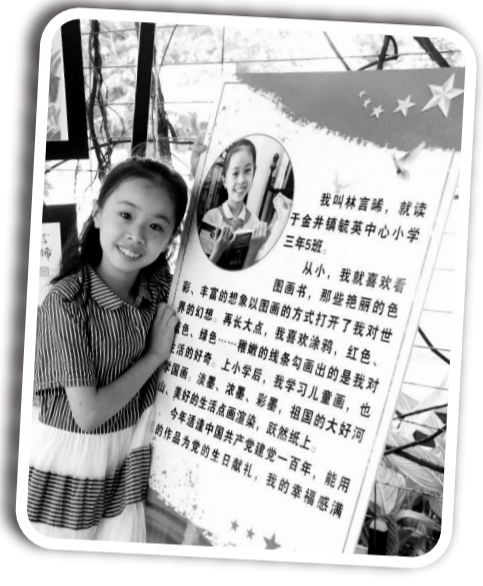 我叫林言晞，就读
于金井镇毓英中心小学
三年5班。
从小，我就喜欢看
图画书，那些艳丽的色
彩、丰富的想象以图画的方式打开了我对世
界的幻想。再长大点，我喜欢涂鸦，红色、
色、绿色……稚嫩的线条勾画出的是我对
生活的好奇。上小学后，我学习儿童画，也
学国画。淡墨、浓墨、彩墨，祖国的大好河
山、美好的生活点画渲染，跃然纸上。
今年适逢中国共产党建党一百年，能用
的作品为党的生日献礼，我的幸福感满